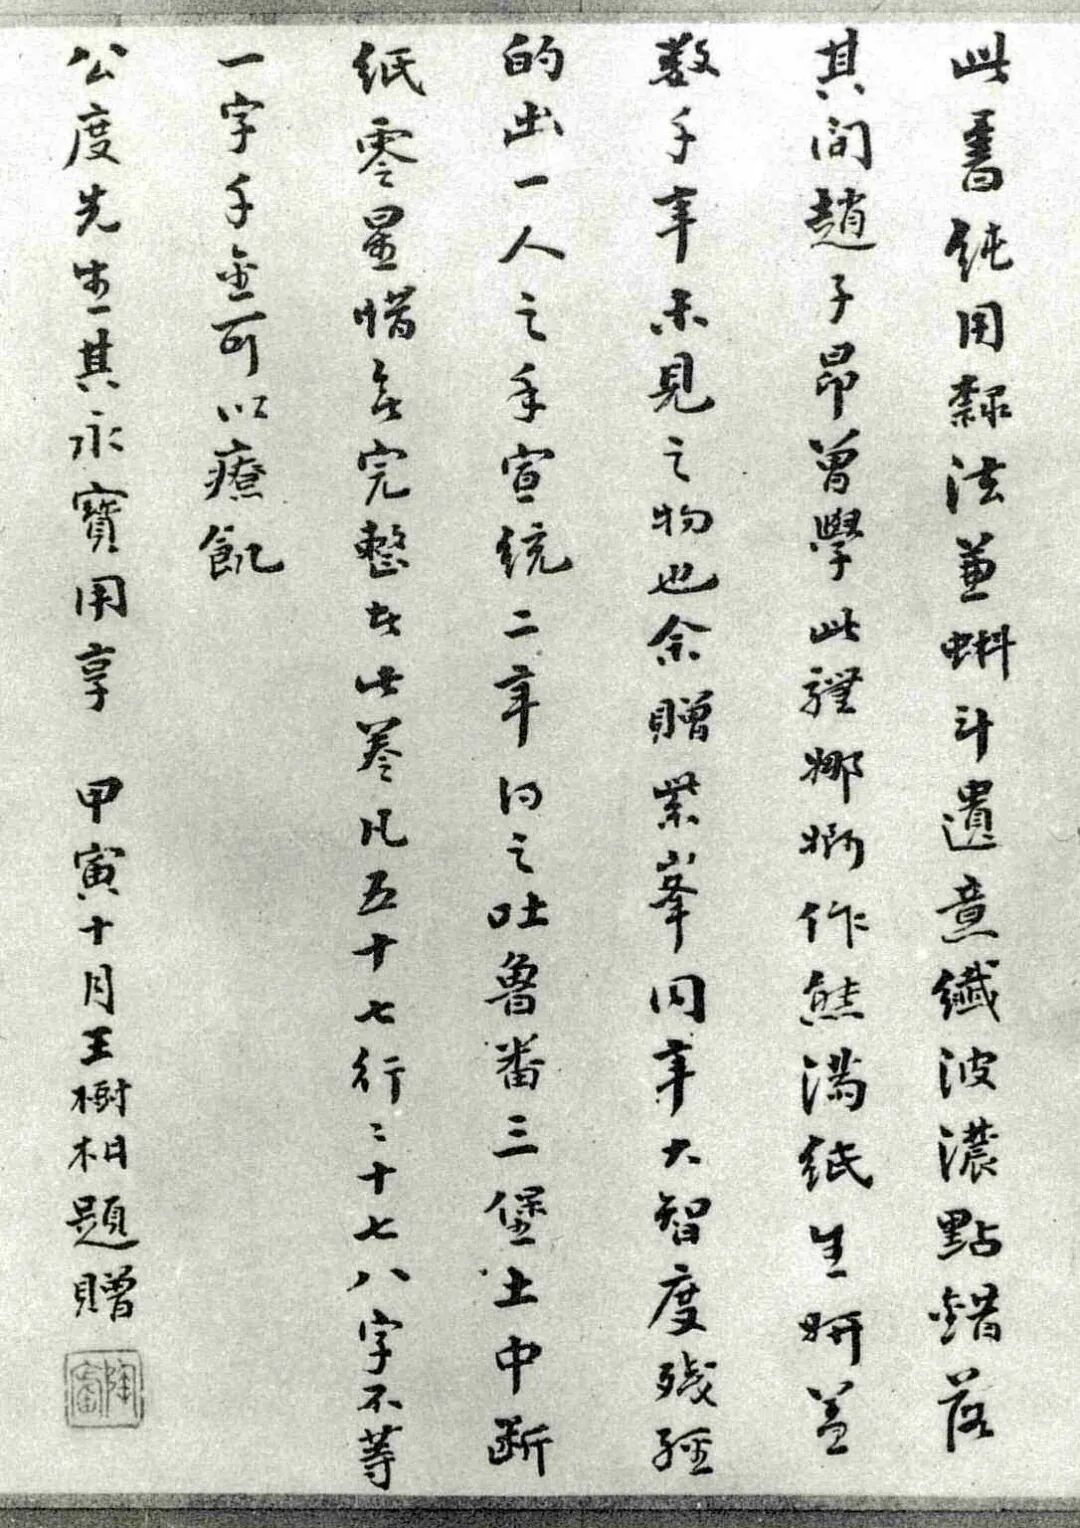 此書純用隸法兼蝌斗遺意纖波濃點錯落
其間趙子昂曾學此體娜婀作態滿紙生妍蓋
數千年未見之物也余贈業峯同年大智度殘經
的出一人之手宣統二年得之吐魯番三堡土中斷
紙零星惜無完整者此卷凡五十七行行十七八字不等
一字千金可以療飢
公度先生其永寶用享 甲寅十月王樹枏題贈
陶廬